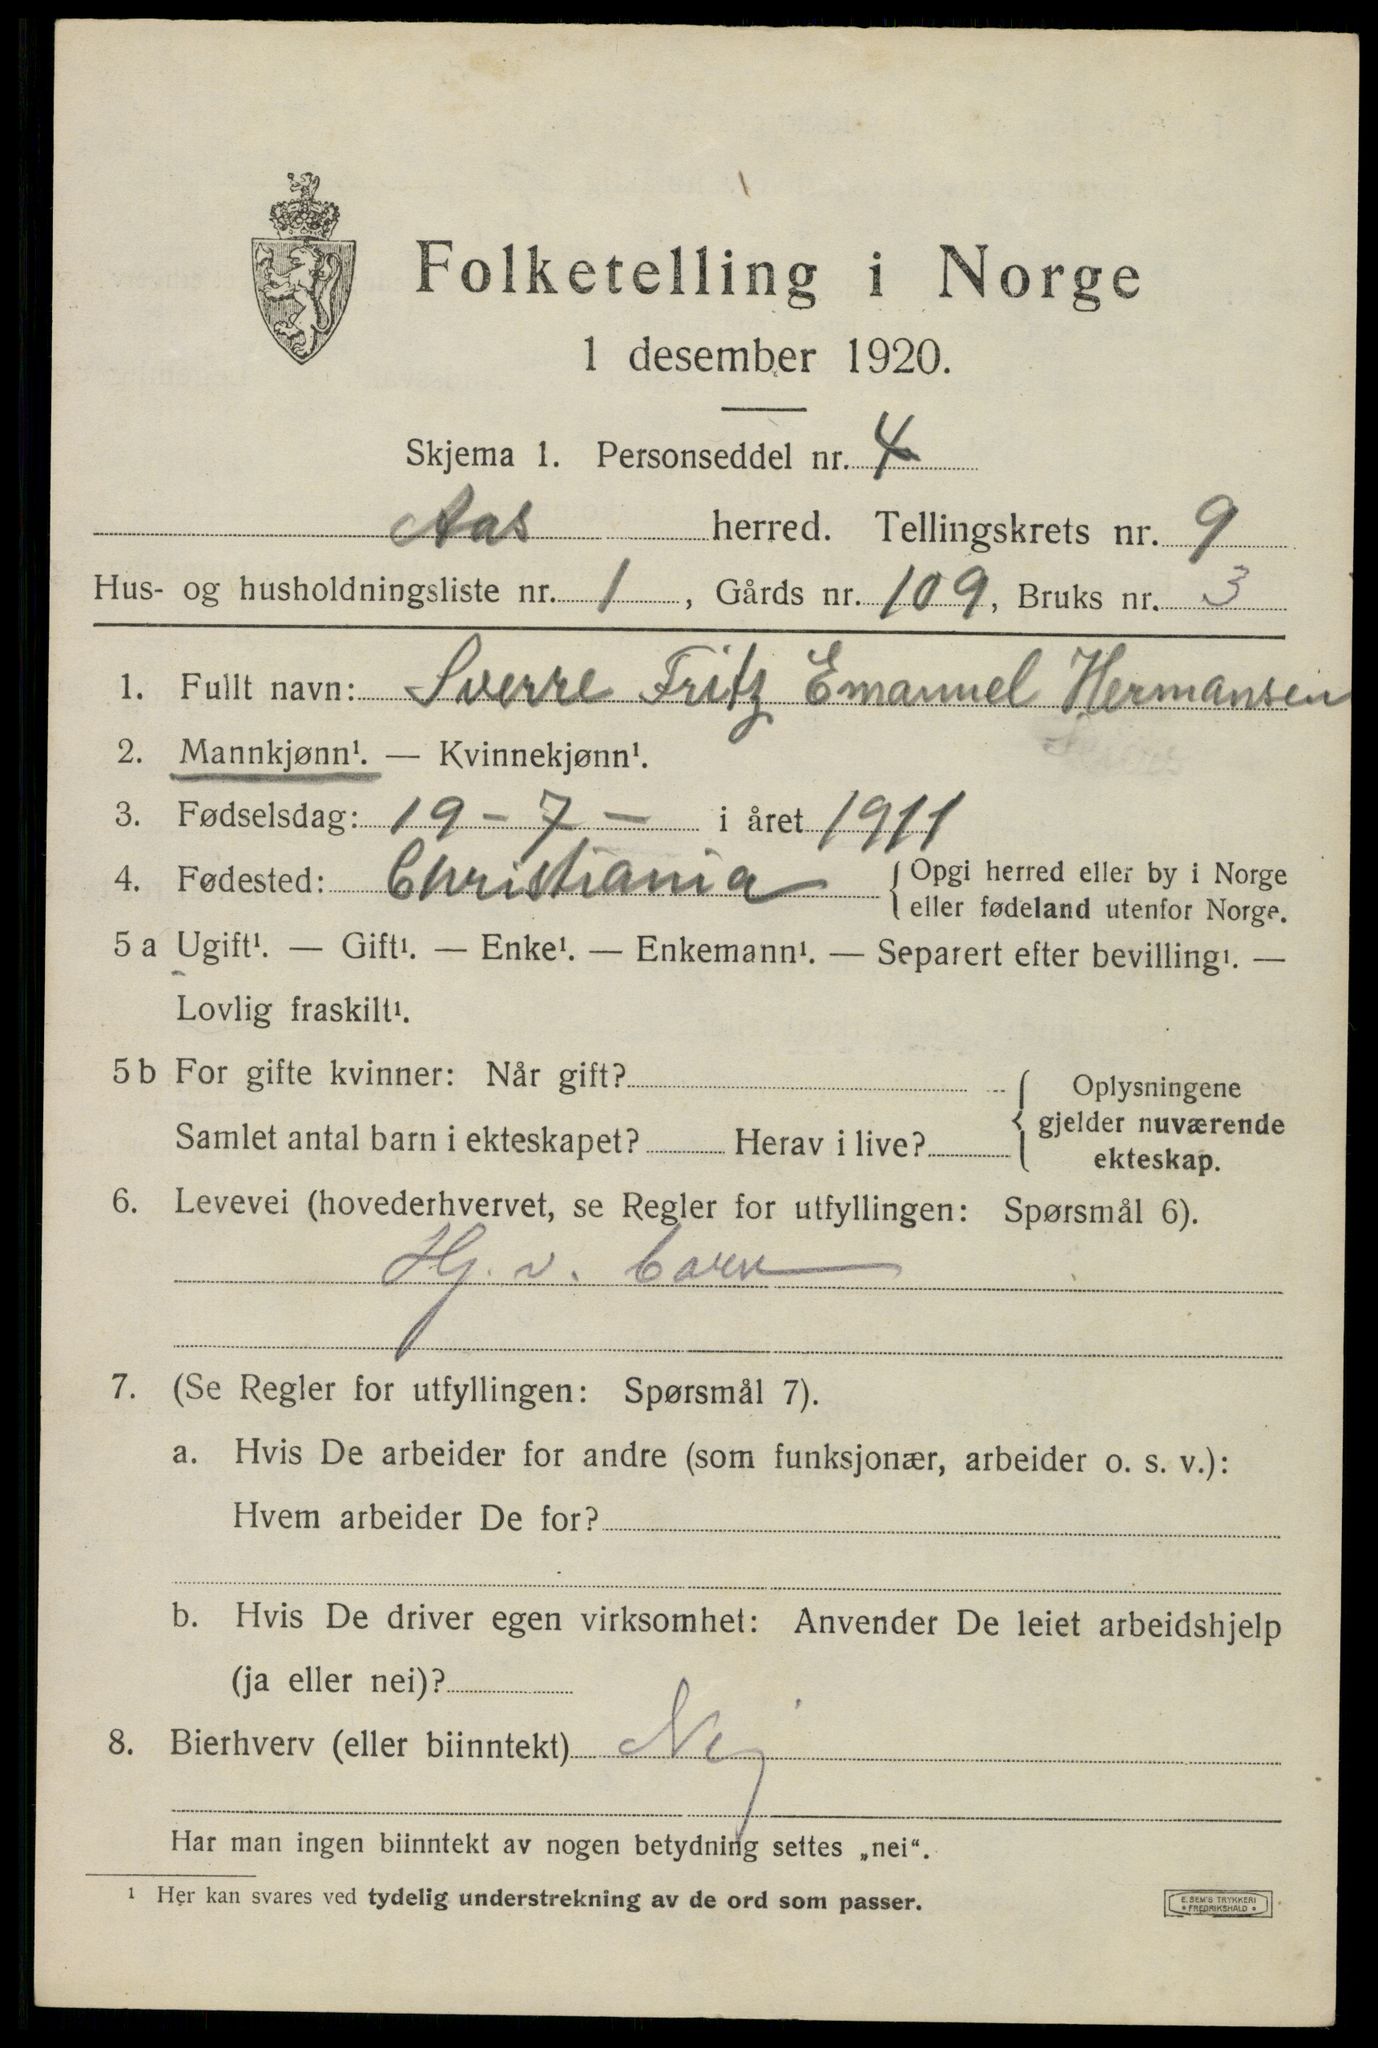 Folketelling i Norge
1 desember 1920.
Skjema 1. Personseddel nr. 4
Aas herred. Tellingskrets nr. 9
Hus- og husholdningsliste nr. 1, Gårds nr. 109, Bruks nr. 3
1. Fullt navn: Sverre Fritz Emanuel Hermansen
2. Mannkjønn¹. — Kvinnekjønn¹.
3. Fødselsdag: 19 - 7 - i året 1911
4. Fødested: Christiania { Opgi herred eller by i Norge
eller fødeland utenfor Norge.
5 a Ugift¹. — Gift¹. — Enke¹. — Enkemann¹. — Separert efter bevilling¹. —
Lovlig fraskilt¹.
5 b For gifte kvinner: Når gift? { Oplysningene
gjelder nuværende
Samlet antal barn i ekteskapet? Herav i live?
ekteskap.
6. Levevei (hovederhvervet, se Regler for utfyllingen: Spørsmål 6).
Hj. v. barn
7. (Se Regler for utfyllingen: Spørsmål 7).
a. Hvis De arbeider for andre (som funksjonær, arbeider o. s. v.):
Hvem arbeider De for?
b. Hvis De driver egen virksomhet: Anvender De leiet arbeidshjelp
(ja eller nei)?
8. Bierhverv (eller biinntekt) Nej
Har man ingen biinntekt av nogen betydning settes „nei“.
¹ Her kan svares ved tydelig understrekning av de ord som passer.
E. SEM'S TRYKKERI
* FREDRIKSHALD *